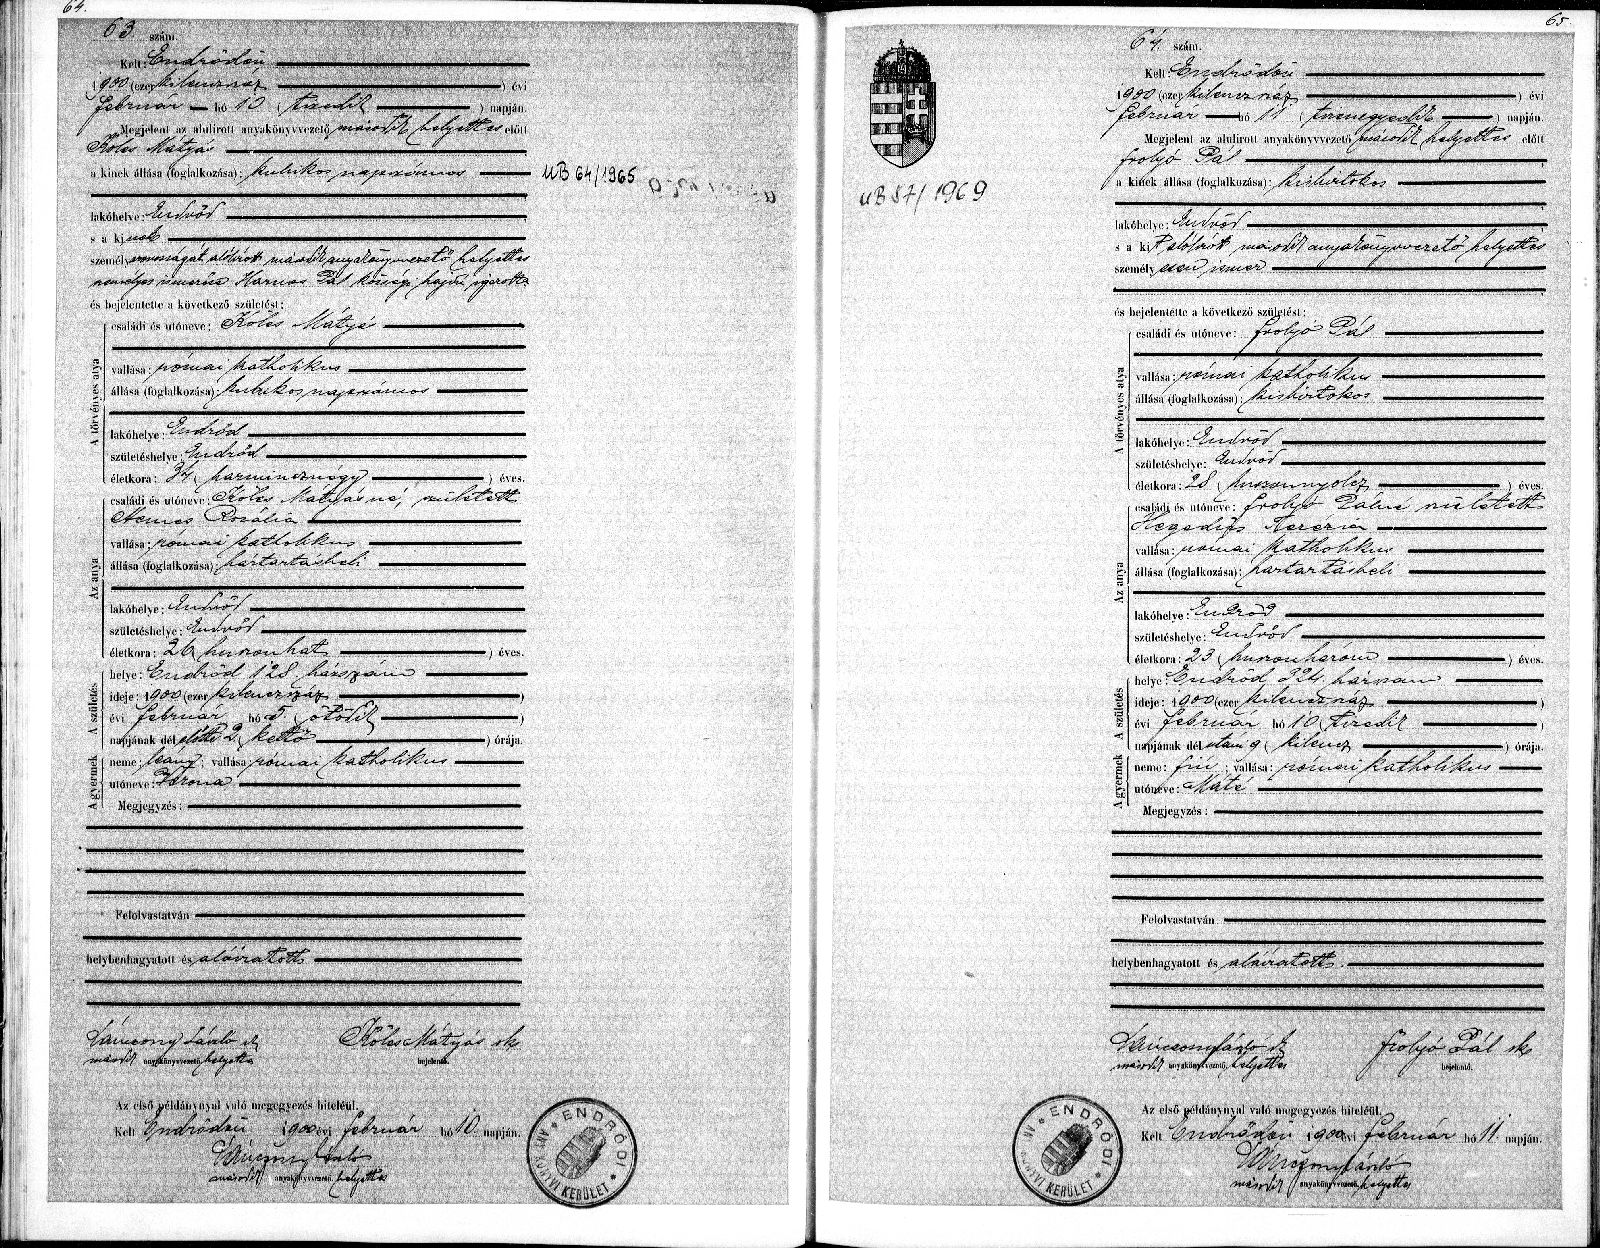 64.
63. szám.
Kelt: Endrődön
1900 (ezer kilenczszáz ) évi
február hó 10 ( tizedik ) napján.
Megjelent az alulírott anyakönyvvezető második helyettes előtt
Kólos Mátyás
a kinek állása (foglalkozása): kubikos napszámos
lakóhelye: Endrőd
s a ki nek
személyazonosságát alólírott második anyakönyvvezető helyettes
személyes ismerőse Harnos Pál községi hajdú igazolta
és bejelentette a következő születést:
A törvényes atya
családi és utóneve: Kólos Mátyás
vallása: római katholikus
állása (foglalkozása): kubikos napszámos
lakóhelye: Endrőd
születéshelye: Endrőd
életkora: 34 ( harmincznégy ) éves.
Az anya
családi és utóneve: Kólos Mátyásné, született
Nemes Rozália
vallása: római katholikus
állása (foglalkozása): háztartásbeli
lakóhelye: Endrőd
születéshelye: Endrőd
életkora: 26 ( huszonhat ) éves.
A születés
helye: Endrőd 128 házszám
ideje: 1900 (ezer kilenczszáz )
évi február hó 5. ( ötödik )
napjának dél előtti 2 ( kettő ) órája.
A gyermek
neme: leány; vallása: római katholikus
utóneve: Verona
Megjegyzés:
Felolvastatván
helybenhagyatott és aláiratott
László
Kólos Mátyás sk
második anyakönyvvezető helyettes
bejelentő.
Az első példánynyal való megegyezés hiteléül.
Kelt Endrődön 1900 évi február hó 10 napján.
második anyakönyvvezető helyettes
ENDRŐDI ANYAKÖNYVI KERÜLET
UB 64/1965
65
UB 57/1969
64. szám.
Kelt: Endrődön
1900 (ezer kilenczszáz ) évi
február hó 11 ( tizenegyedik ) napján.
Megjelent az alulírott anyakönyvvezető második helyettes előtt
Frolyó Pál
a kinek állása (foglalkozása): kisbirtokos
lakóhelye: Endrőd
s a kit alólírott második anyakönyvvezető helyettes
személyesen ismer
és bejelentette a következő születést:
A törvényes atya
családi és utóneve: Frolyó Pál
vallása: római katholikus
állása (foglalkozása): kisbirtokos
lakóhelye: Endrőd
születéshelye: Endrőd
életkora: 28 ( huszonnyolcz ) éves.
Az anya
családi és utóneve: Frolyó Pálné született
Hegedűs Terézia
vallása: római katholikus
állása (foglalkozása): háztartásbeli
lakóhelye: Endrőd
születéshelye: Endrőd
életkora: 23 ( huszonhárom ) éves.
A születés
helye: Endrőd 324 házszám
ideje: 1900 (ezer kilenczszáz )
évi február hó 10 ( tizedik )
napjának dél utáni 9 ( kilencz ) órája.
A gyermek
neme: fiú; vallása: római katholikus
utóneve: Máté
Megjegyzés:
Felolvastatván
helybenhagyatott és aláiratott.
László
Frolyó Pál sk
második anyakönyvvezető, helyettes
bejelentő.
Az első példánynyal való megegyezés hiteléül.
Kelt Endrődön 1900 évi február hó 11 napján.
László
második anyakönyvvezető helyettes
ENDRŐDI ANYAKÖNYVI KERÜLET